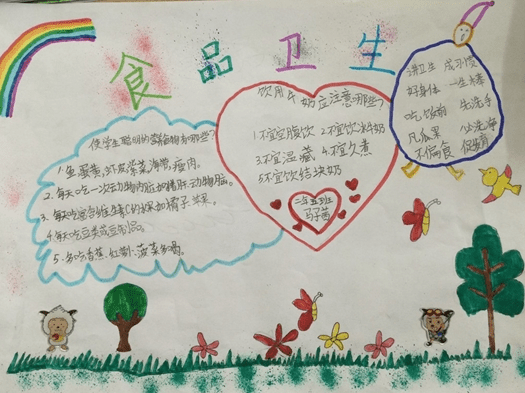 食品卫生
使学生聪明的食物有哪些?
1.鱼、蛋黄、虾皮、紫菜、海带、瘦肉。
2.每天吃一次动物内脏如猪肝、动物脑。
3.每天吃富含维生素C的
4.每天吃豆类或豆制品。
5.多吃香蕉、红
饮用牛奶应注意哪些?
1.不宜空腹饮 2.不宜饮冰牛奶
3.不宜温藏 4.不宜久煮
5.不宜饮结块奶
二年五班
讲卫生 成习惯
好身体 一生棒
吃饭前 先洗手
凡瓜果 必洗净
不偏食 保发育